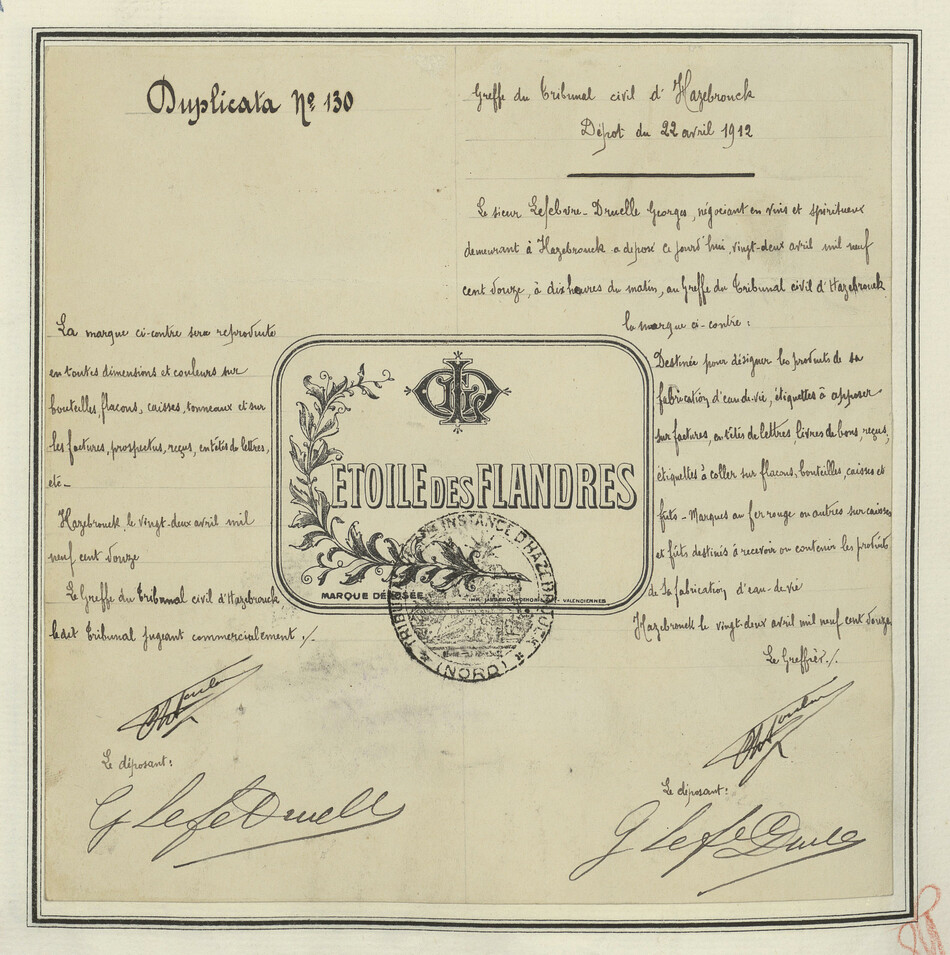 Duplicata Nº 130
Greffe du Tribunal civil d'Hazebrouck
Dépot du 22 avril 1912
Le sieur Lefebvre-Druelle Georges, négociant en vins et spiritueux
demeurant à Hazebrouck a déposé ce jourd'hui, vingt-deux avril mil neuf
cent douze, à dix heures du matin, au Greffe du Tribunal civil d'Hazebrouck
la marque ci-contre :
Destinée pour désigner les produits de sa
fabrication d'eau-de-vie, étiquettes à apposer
sur factures, entêtes de lettres, livres de bons, reçus,
étiquettes à coller sur flacons, bouteilles, caisses et
fûts - Marques au fer rouge ou autres sur caisses
et fûts destinés à recevoir ou contenir les produits
de sa fabrication d'eau-de-vie
Hazebrouck le vingt-deux avril mil neuf cent douze
Le Greffier ./.
Le déposant :
G Lefe Druelle
La marque ci-contre sera reproduite
en toutes dimensions et couleurs sur
bouteilles, flacons, caisses, tonneaux et sur
les factures, prospectus, reçus, entêtes de lettres,
etc -
Hazebrouck, le vingt-deux avril mil
neuf cent douze
Le Greffe du Tribunal civil d'Hazebrouck
ledit Tribunal jugeant commercialement ./.
Le déposant :
G Lefe Druelle
ETOILE DES FLANDRES
MARQUE DÉPOSÉE
VALENCIENNES
TRIBUNAL INSTANCE D'HAZEBROUCK
(NORD)